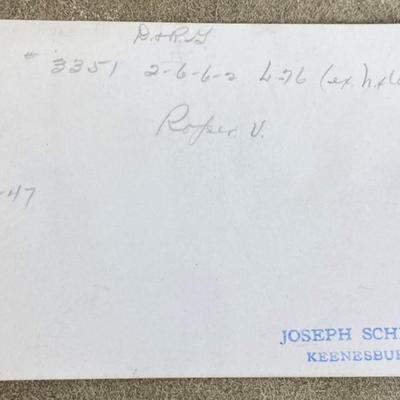 D&R.G.
# 3351 2-6-6-2 L-76 (ex. N.&W
Roper V.
-47
JOSEPH SCH
KEENESBU